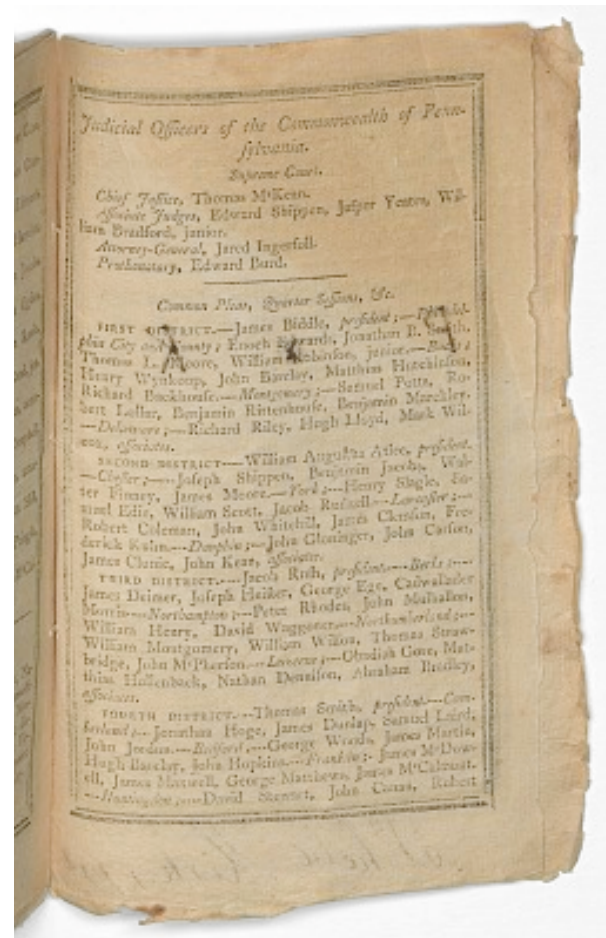 Judicial Officers of the Commonwealth of Penn-
ſylvania.
Supreme Court.
Chief Juſtice, Thomas M'Kean.
Aſſociate Judges, Edward Shippen, Jaſper Yeates, Wil-
liam Bradford, junior.
Attorney-General, Jared Ingerſoll.
Prothonotary, Edward Burd.
Common Pleas, Quarter Seſſions, &c.
FIRST DISTRICT.—James Biddle, preſident;—Philadel-
phia City and County; Enoch Edwards, Jonathan B. Smith,
Thomas L. Moore, William Robinſon, junior.—Bucks;
Henry Wynkoop, John Barclay, Matthias Hutchinſon,
Richard Backhouſe.—Montgomery;—Samuel Potts, Ro-
bert Loller, Benjamin Rittenhouſe, Benjamin Marckley.
—Delaware;—Richard Riley, Hugh Lloyd, Mark Wil-
cox, aſſociates.
SECOND DISTRICT—William Auguſtus Atlee, preſident.
—Cheſter;—Joſeph Shippen, Benjamin Jacobs, Wal-
ter Finney, James Moore.—York;—Henry Slagle, Sa-
muel Edie, William Scott, Jacob Rudiſell—Lancaſter;—
Robert Coleman, John Whitehill, James Clemſon, Fre-
derick Kuhn.—Dauphin;—John Gloninger, John Carſon,
James Clunie, John Kean, aſſociates.
THIRD DISTRICT.—Jacob Ruſh, preſident.—Berks;—
James Deimer, Joſeph Heiſter, George Ege, Cadwalader
Morris—Northampton;—Peter Rhodes, John Mulhallon,
William Henry, David Waggoner.—Northumberland;—
William Montgomery, William Wilſon, Thomas Straw-
bridge, John M'Pherſon.—Luzerne;—Obadiah Gore, Mat-
thias Hollenback, Nathan Denniſon, Abraham Bradley,
aſſociates.
FOURTH DISTRICT.—Thomas Smith, preſident.—Cum-
berland;—Jonathan Hoge, James Dunlap, Samuel Laird,
John Jordan.—Bedford;—George Woods, James Martin,
Hugh Barclay, John Hopkins.—Franklin;—James M'Dow-
ell, James Maxwell, George Matthews, James M'Calmont.
—Huntingdon;—David Stewart, John Canan, Robert